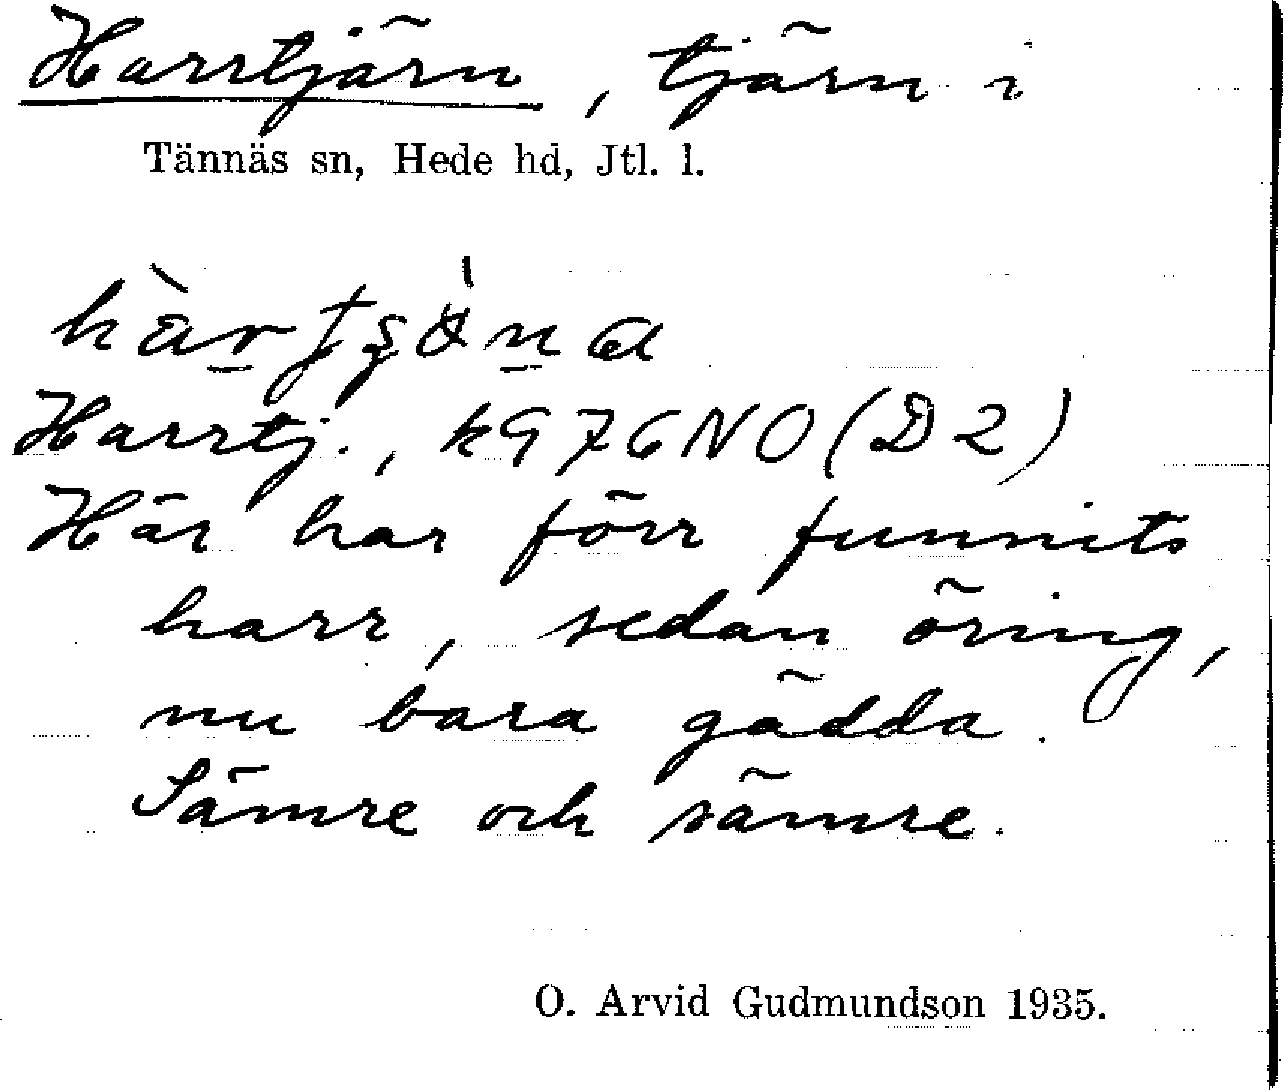 Harrtjärn, tjärn i
Tännäs sn, Hede hd, Jtl. l.
Harrtj., k976NO(D2)
Här har förr funnits
harr, sedan öring,
nu bara gädda.
Sämre och sämre.
O. Arvid Gudmundson 1935.